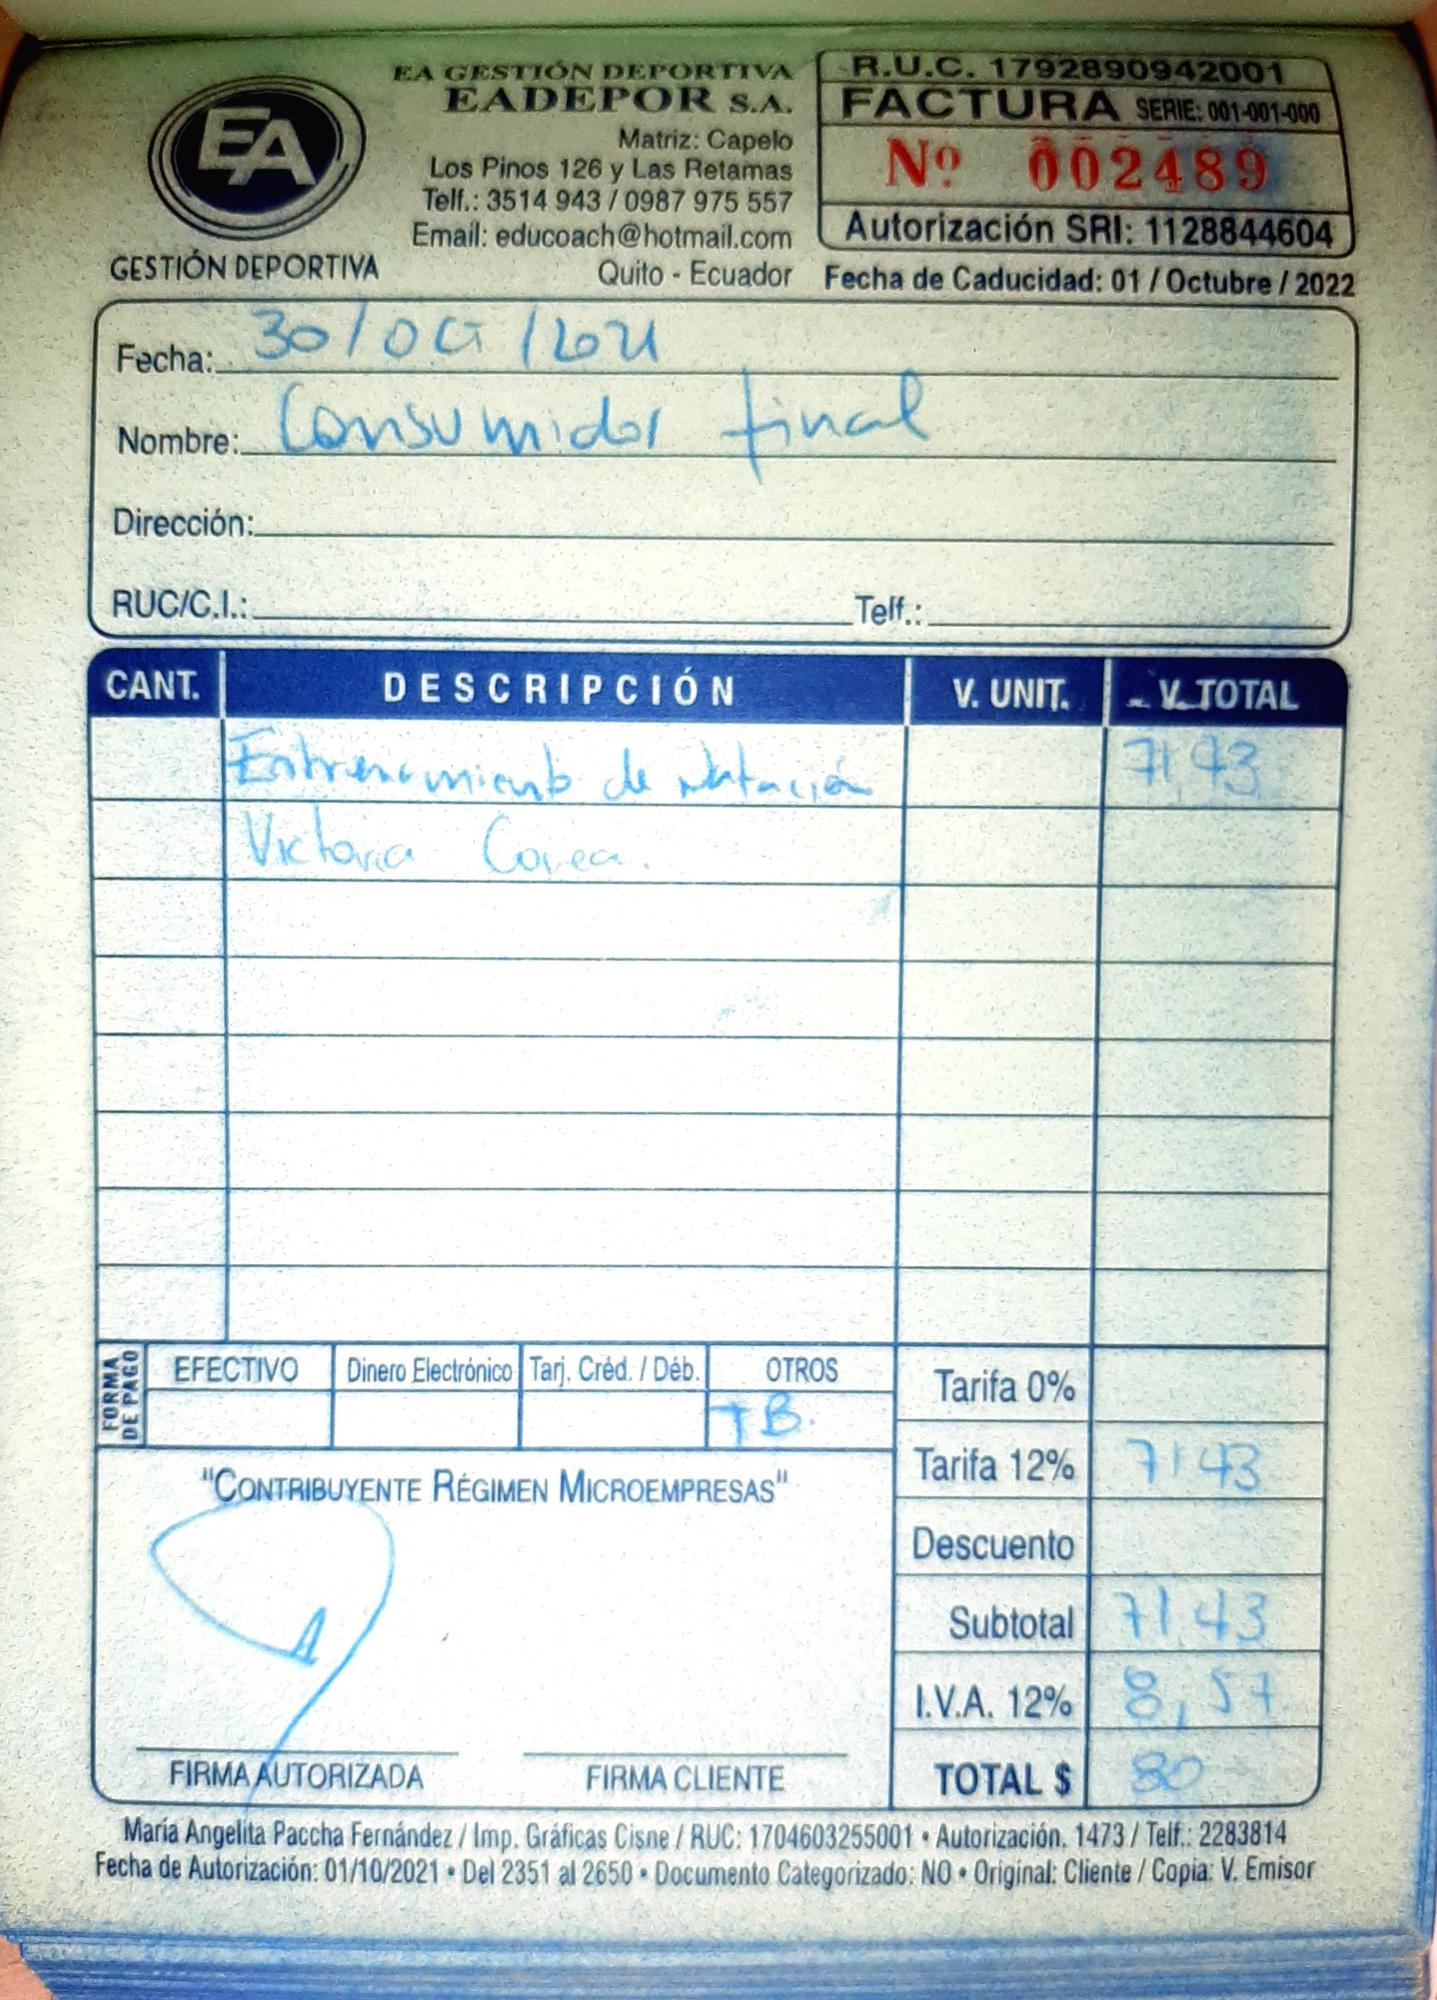 EA
GESTIÓN DEPORTIVA
EA GESTIÓN DEPORTIVA
EADEPOR S.A.
Matriz: Capelo
Los Pinos 126 y Las Retamas
Telf.: 3514 943 / 0987 975 557
Email: educoach@hotmail.com
Quito - Ecuador
R.U.C. 1792890942001
FACTURA SERIE: 001-001-000
Nº 002489
Autorización SRI: 1128844604
Fecha de Caducidad: 01 / Octubre / 2022
Fecha: 30/Oct/2021
Nombre: Consumidor final
Dirección:
RUC/C.I.: Telf.:
CANT. DESCRIPCIÓN V. UNIT. V. TOTAL
Entrenamiento de Natación 71,43
Victoria Correa.
FORMA DE PAGO
EFECTIVO Dinero Electrónico Tarj. Créd. / Déb. OTROS
TB.
Tarifa 0%
Tarifa 12% 71,43
Descuento
Subtotal 71,43
I.V.A. 12% 8,57
TOTAL $ 80
"CONTRIBUYENTE RÉGIMEN MICROEMPRESAS"
FIRMA AUTORIZADA FIRMA CLIENTE
María Angelita Paccha Fernández / Imp. Gráficas Cisne / RUC: 1704603255001 • Autorización. 1473 / Telf.: 2283814
Fecha de Autorización: 01/10/2021 • Del 2351 al 2650 • Documento Categorizado: NO • Original: Cliente / Copia: V. Emisor